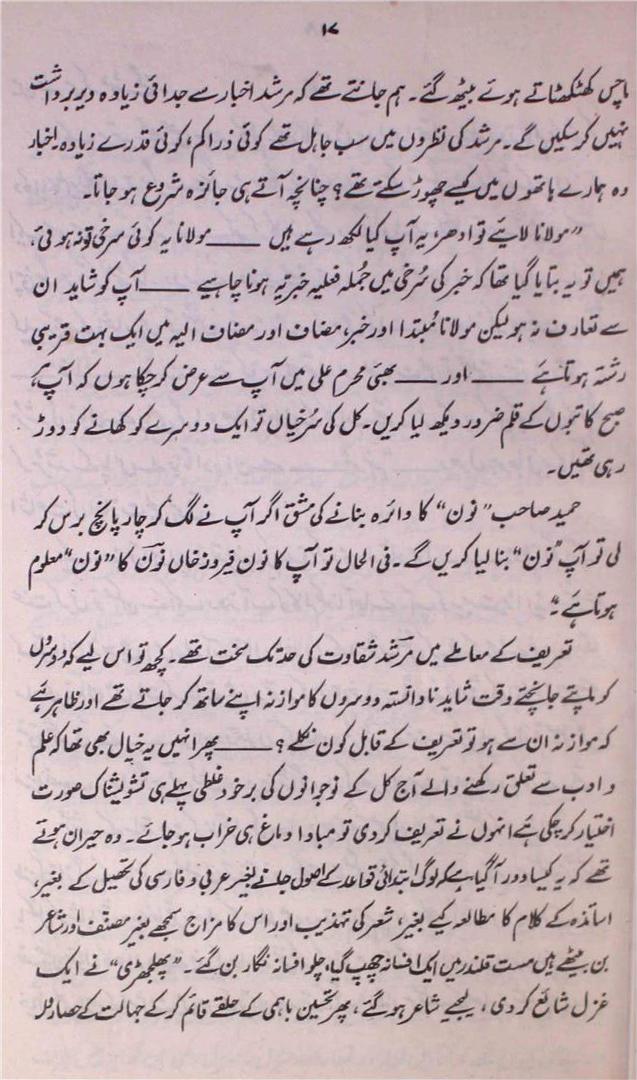 ۱۷
ماچس کھٹکھٹاتے ہوئے بیٹھ گئے۔ ہم جانتے تھے کہ مرشد اخبار سے جدائی زیادہ دیر برداشت
نہیں کرسکیں گے۔ مرشد کی نظروں میں سب جاہل تھے کوئی ذرا کم، کوئی قدرے زیادہ اخبار
وہ ہمارے ہاتھوں میں کیسے چھوڑ سکتے تھے؟ چنانچہ آتے ہی جائزہ شروع ہو جاتا۔
”مولانا لایئے تو ادھر، یہ آپ کیا لکھ رہے ہیں ——— مولانا یہ کوئی سرخی تو نہ ہوئی،
ہمیں تو یہ بتایا گیا تھا کہ خبر کی سُرخی میں جُملہ فعلیہ خبریہ ہونا چاہیے ——— آپ کو شاید ان
سے تعارف نہ ہو لیکن مولانا مُبتدا اور خبر، مضاف اور مضاف الیہ میں ایک بہت قریبی
رشتہ ہوتا ہے ——— اور ——— بھئی محرم علی میں آپ سے عرض کر چکا ہوں کہ آپ
صبح کاتبوں کے قلم ضرور دیکھ لیا کریں۔ کل کی سُرخیاں تو ایک دوسرے کو کھانے کو دوڑ
رہی تھیں۔
حمید صاحب ”نون“ کا دائرہ بنانے کی مشق اگر آپ نے لگ کر چار پانچ برس کر
لی تو آپ ”نون“ بنا لیا کریں گے۔ فی الحال تو آپ کا نون فیروز خاں نون کا ”نون“ معلوم
ہوتا ہے“۔
تعریف کے معاملے میں مرشد شقاوت کی حد تک سخت تھے۔ کچھ تو اس لیے کہ دوسروں
کو ماپتے جانچتے وقت شاید نادانستہ دوسروں کا موازنہ اپنے ساتھ کر جاتے تھے اور ظاہر ہے
کہ موازنہ ان سے ہو تو تعریف کے قابل کون نکلے؟ ——— پھر انہیں یہ خیال بھی تھا کہ علم
و ادب سے تعلق رکھنے والے آج کل کے نوجوانوں کی برخود غلطی پہلے ہی تشویشناک صورت
اختیار کر چکی ہے انہوں نے تعریف کردی تو مبادا دماغ ہی خراب ہو جائے۔ وہ حیران ہوتے
تھے کہ یہ کیسا دور آگیا ہے کہ لوگ ابتدائی قواعد کے اصول جانے بغیر عربی و فارسی کی تحصیل کے بغیر،
اساتذہ کے کلام کا مطالعہ کیے بغیر، شعر کی تہذیب اور اس کا مزاج سمجھے بغیر مصنف اور شاعر
بن بیٹھے ہیں مست قلندر میں ایک افسانہ چھپ گیا، چلو افسانہ نگار بن گئے۔ ”پھلجھڑی“ نے ایک
غزل شائع کردی، لیجیے شاعر ہو گئے، پھر تحسین باہمی کے حلقے قائم کر کے جہالت کے حصار